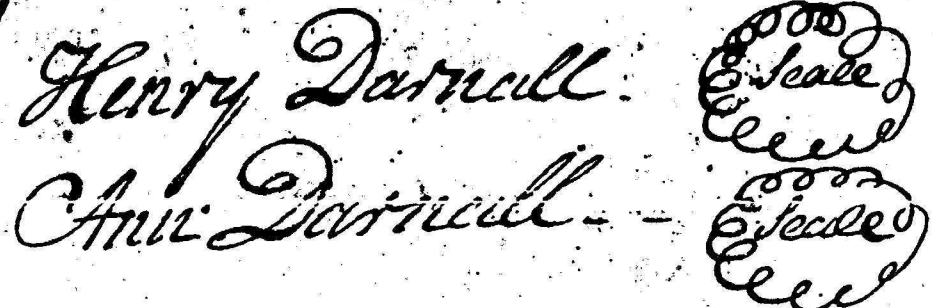 Henry Darnall. Seale
Ann Darnall - - Seale